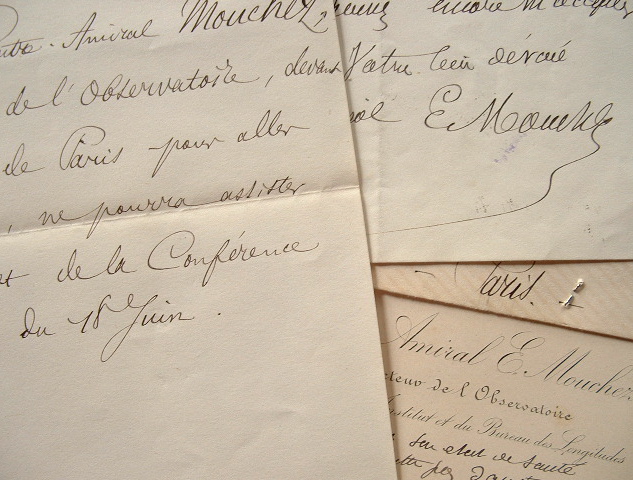 Contre-Amiral Mouchez,
de l'Observatoire, devant
de Paris pour aller
, ne pourra assister
et de la Conférence
du 18 Juin.
encore m
Votre bien dévoué
E Mouchez
Paris.
Amiral E. Mouchez
cteur de l'Observatoire
Institut et du Bureau des Longitudes
son état de santé